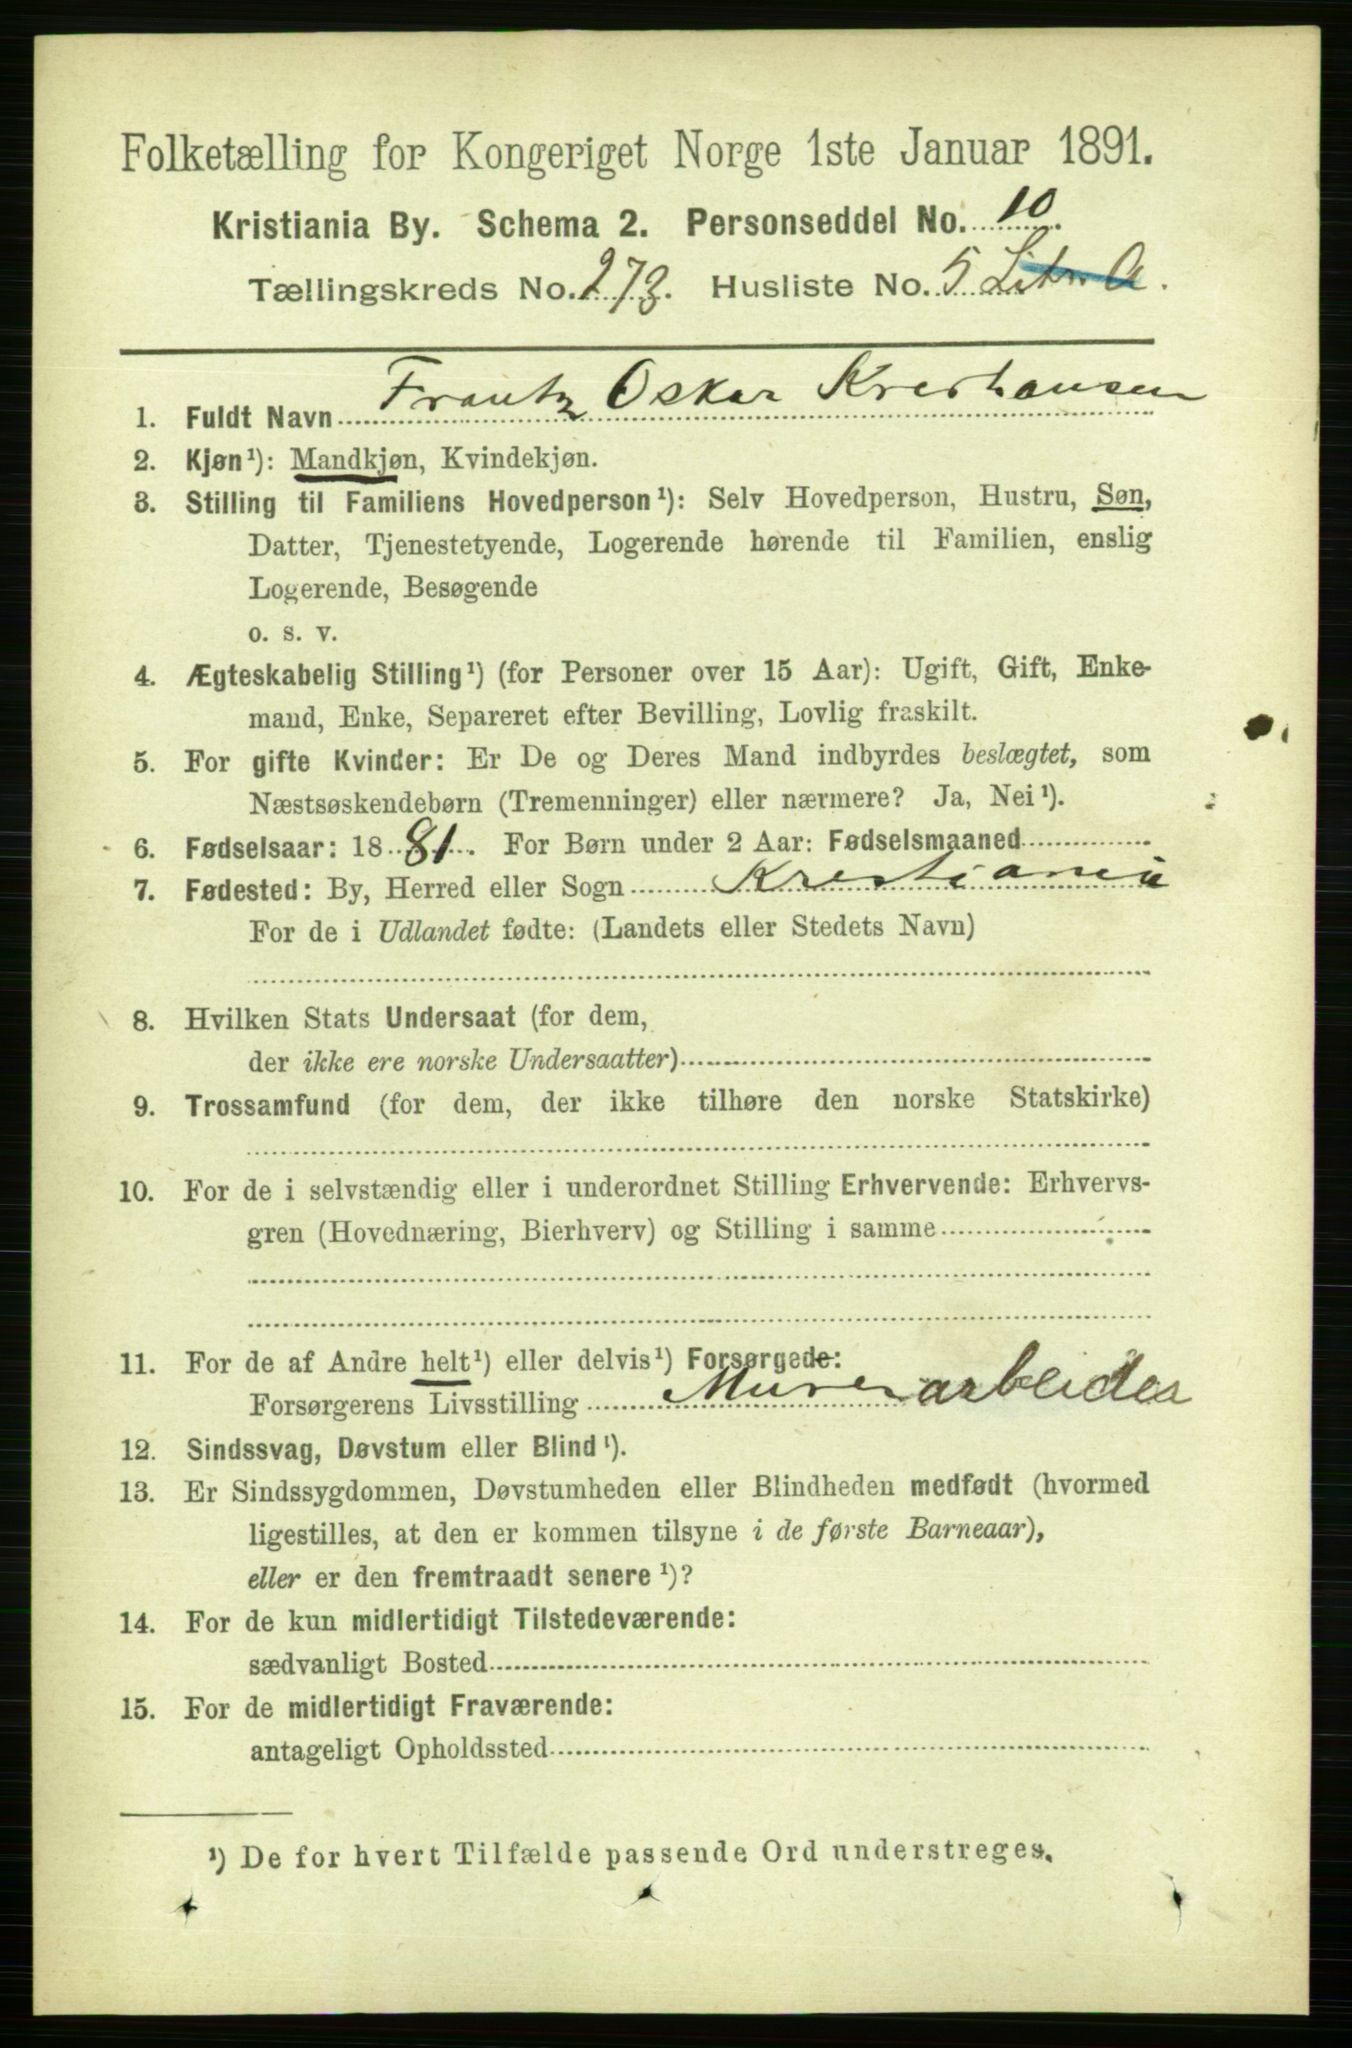 Folketælling for Kongeriget Norge 1ste Januar 1891.
Kristiania By. Schema 2. Personseddel No. 10.
Tællingskreds No. 273. Husliste No. 5 Litr. A.
1. Fuldt Navn Frantz Oskar
2. Kjøn¹): Mandkjøn, Kvindekjøn.
3. Stilling til Familiens Hovedperson¹): Selv Hovedperson, Hustru, Søn,
Datter, Tjenestetyende, Logerende hørende til Familien, enslig
Logerende, Besøgende
o. s. v.
4. Ægteskabelig Stilling¹) (for Personer over 15 Aar): Ugift, Gift, Enke-
mand, Enke, Separeret efter Bevilling, Lovlig fraskilt.
5. For gifte Kvinder: Er De og Deres Mand indbyrdes beslægtet, som
Næstsøskendebørn (Tremenninger) eller nærmere? Ja, Nei¹).
6. Fødselsaar: 1881. For Børn under 2 Aar: Fødselsmaaned
7. Fødested: By, Herred eller Sogn Krestiania
For de i Udlandet fødte: (Landets eller Stedets Navn)
8. Hvilken Stats Undersaat (for dem,
der ikke ere norske Undersaatter)
9. Trossamfund (for dem, der ikke tilhøre den norske Statskirke)
10. For de i selvstændig eller i underordnet Stilling Erhvervende: Erhvervs-
gren (Hovednæring, Bierhverv) og Stilling i samme
11. For de af Andre helt¹) eller delvis¹) Forsørgede:
Forsørgerens Livsstilling Murerarbeider
12. Sindssvag, Døvstum eller Blind¹).
13. Er Sindssygdommen, Døvstumheden eller Blindheden medfødt (hvormed
ligestilles, at den er kommen tilsyne i de første Barneaar),
eller er den fremtraadt senere¹)?
14. For de kun midlertidigt Tilstedeværende:
sædvanligt Bosted
15. For de midlertidigt Fraværende:
antageligt Opholdssted
¹) De for hvert Tilfælde passende Ord understreges.